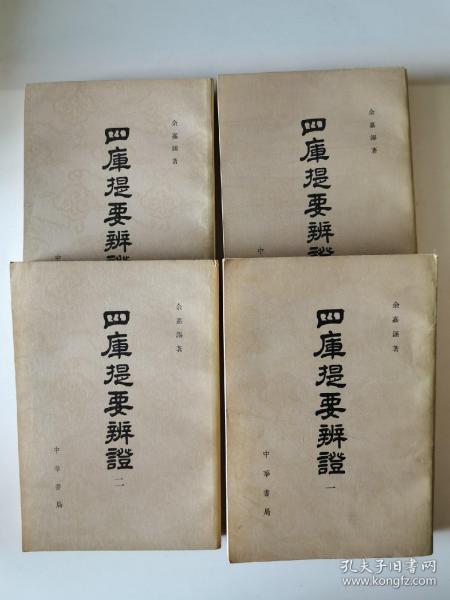 余嘉錫著
四庫提要辨證
中
余嘉錫著
四庫提要辨證
中
余嘉錫著
四庫提要辨證
二
中華書局
余嘉錫著
四庫提要辨證
一
中華書局
孔夫子旧书网
www.kongfz.com